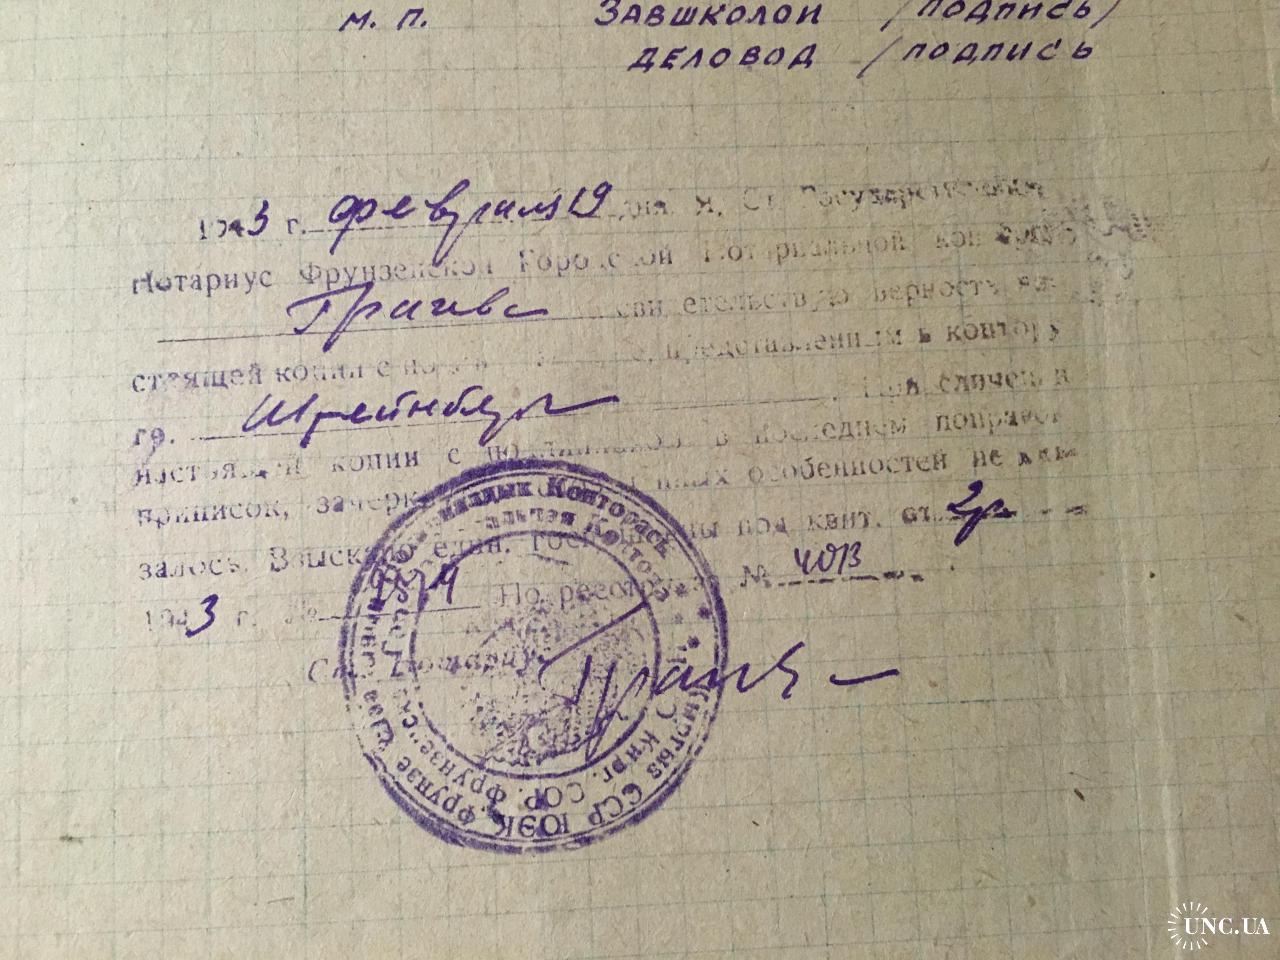 М. П. Завшколой /подпись/
деловод /подпись
1943 г. февраля 19 дня я, Ст. Государственный
Нотариус Фрунзенской Городской Нотариальной конторы
свидетельствую верность на-
стоящей копии с представленным в контору
гр. Штейнберг . При сличении
настоящей копии с подлинником в последнем поправок
приписок, зачерк иных особенностей не ока-
залось. Взыскано един. госпошлины под квит. от 2р
1943 г. № По реестру за № 4013
Ст. Нотариус
Нотариалдык Конторасы
Киргиз ССР ЮЭК. Фрунзе
Кирг. ССР. Фрунзе
UNC.UA